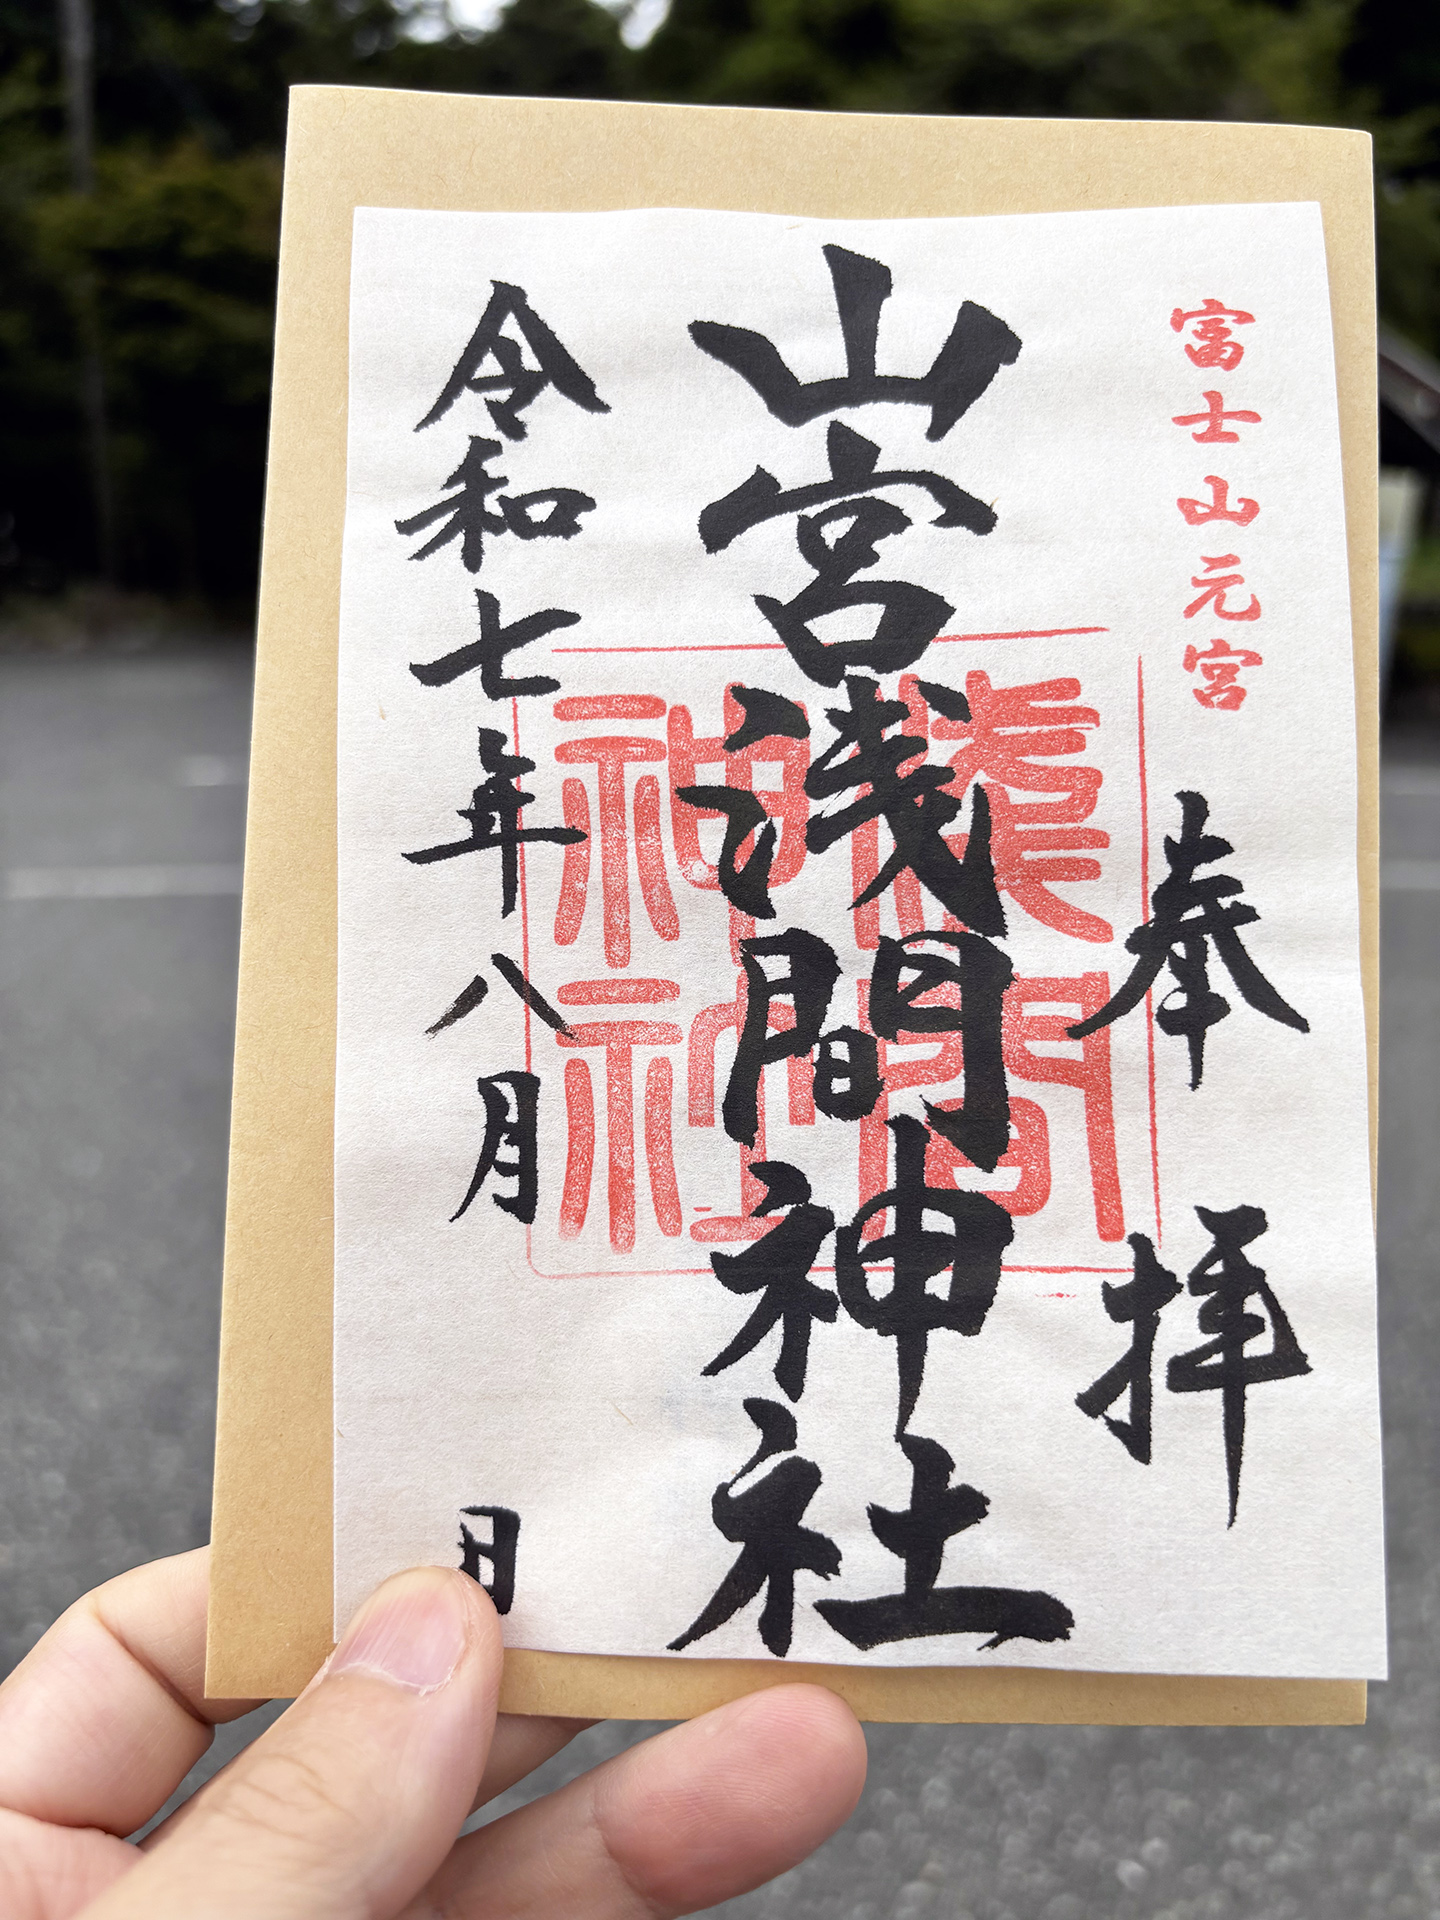 富士山元宮
奉拝
山宮浅間神社
淺間
神社
令和七年八月 日